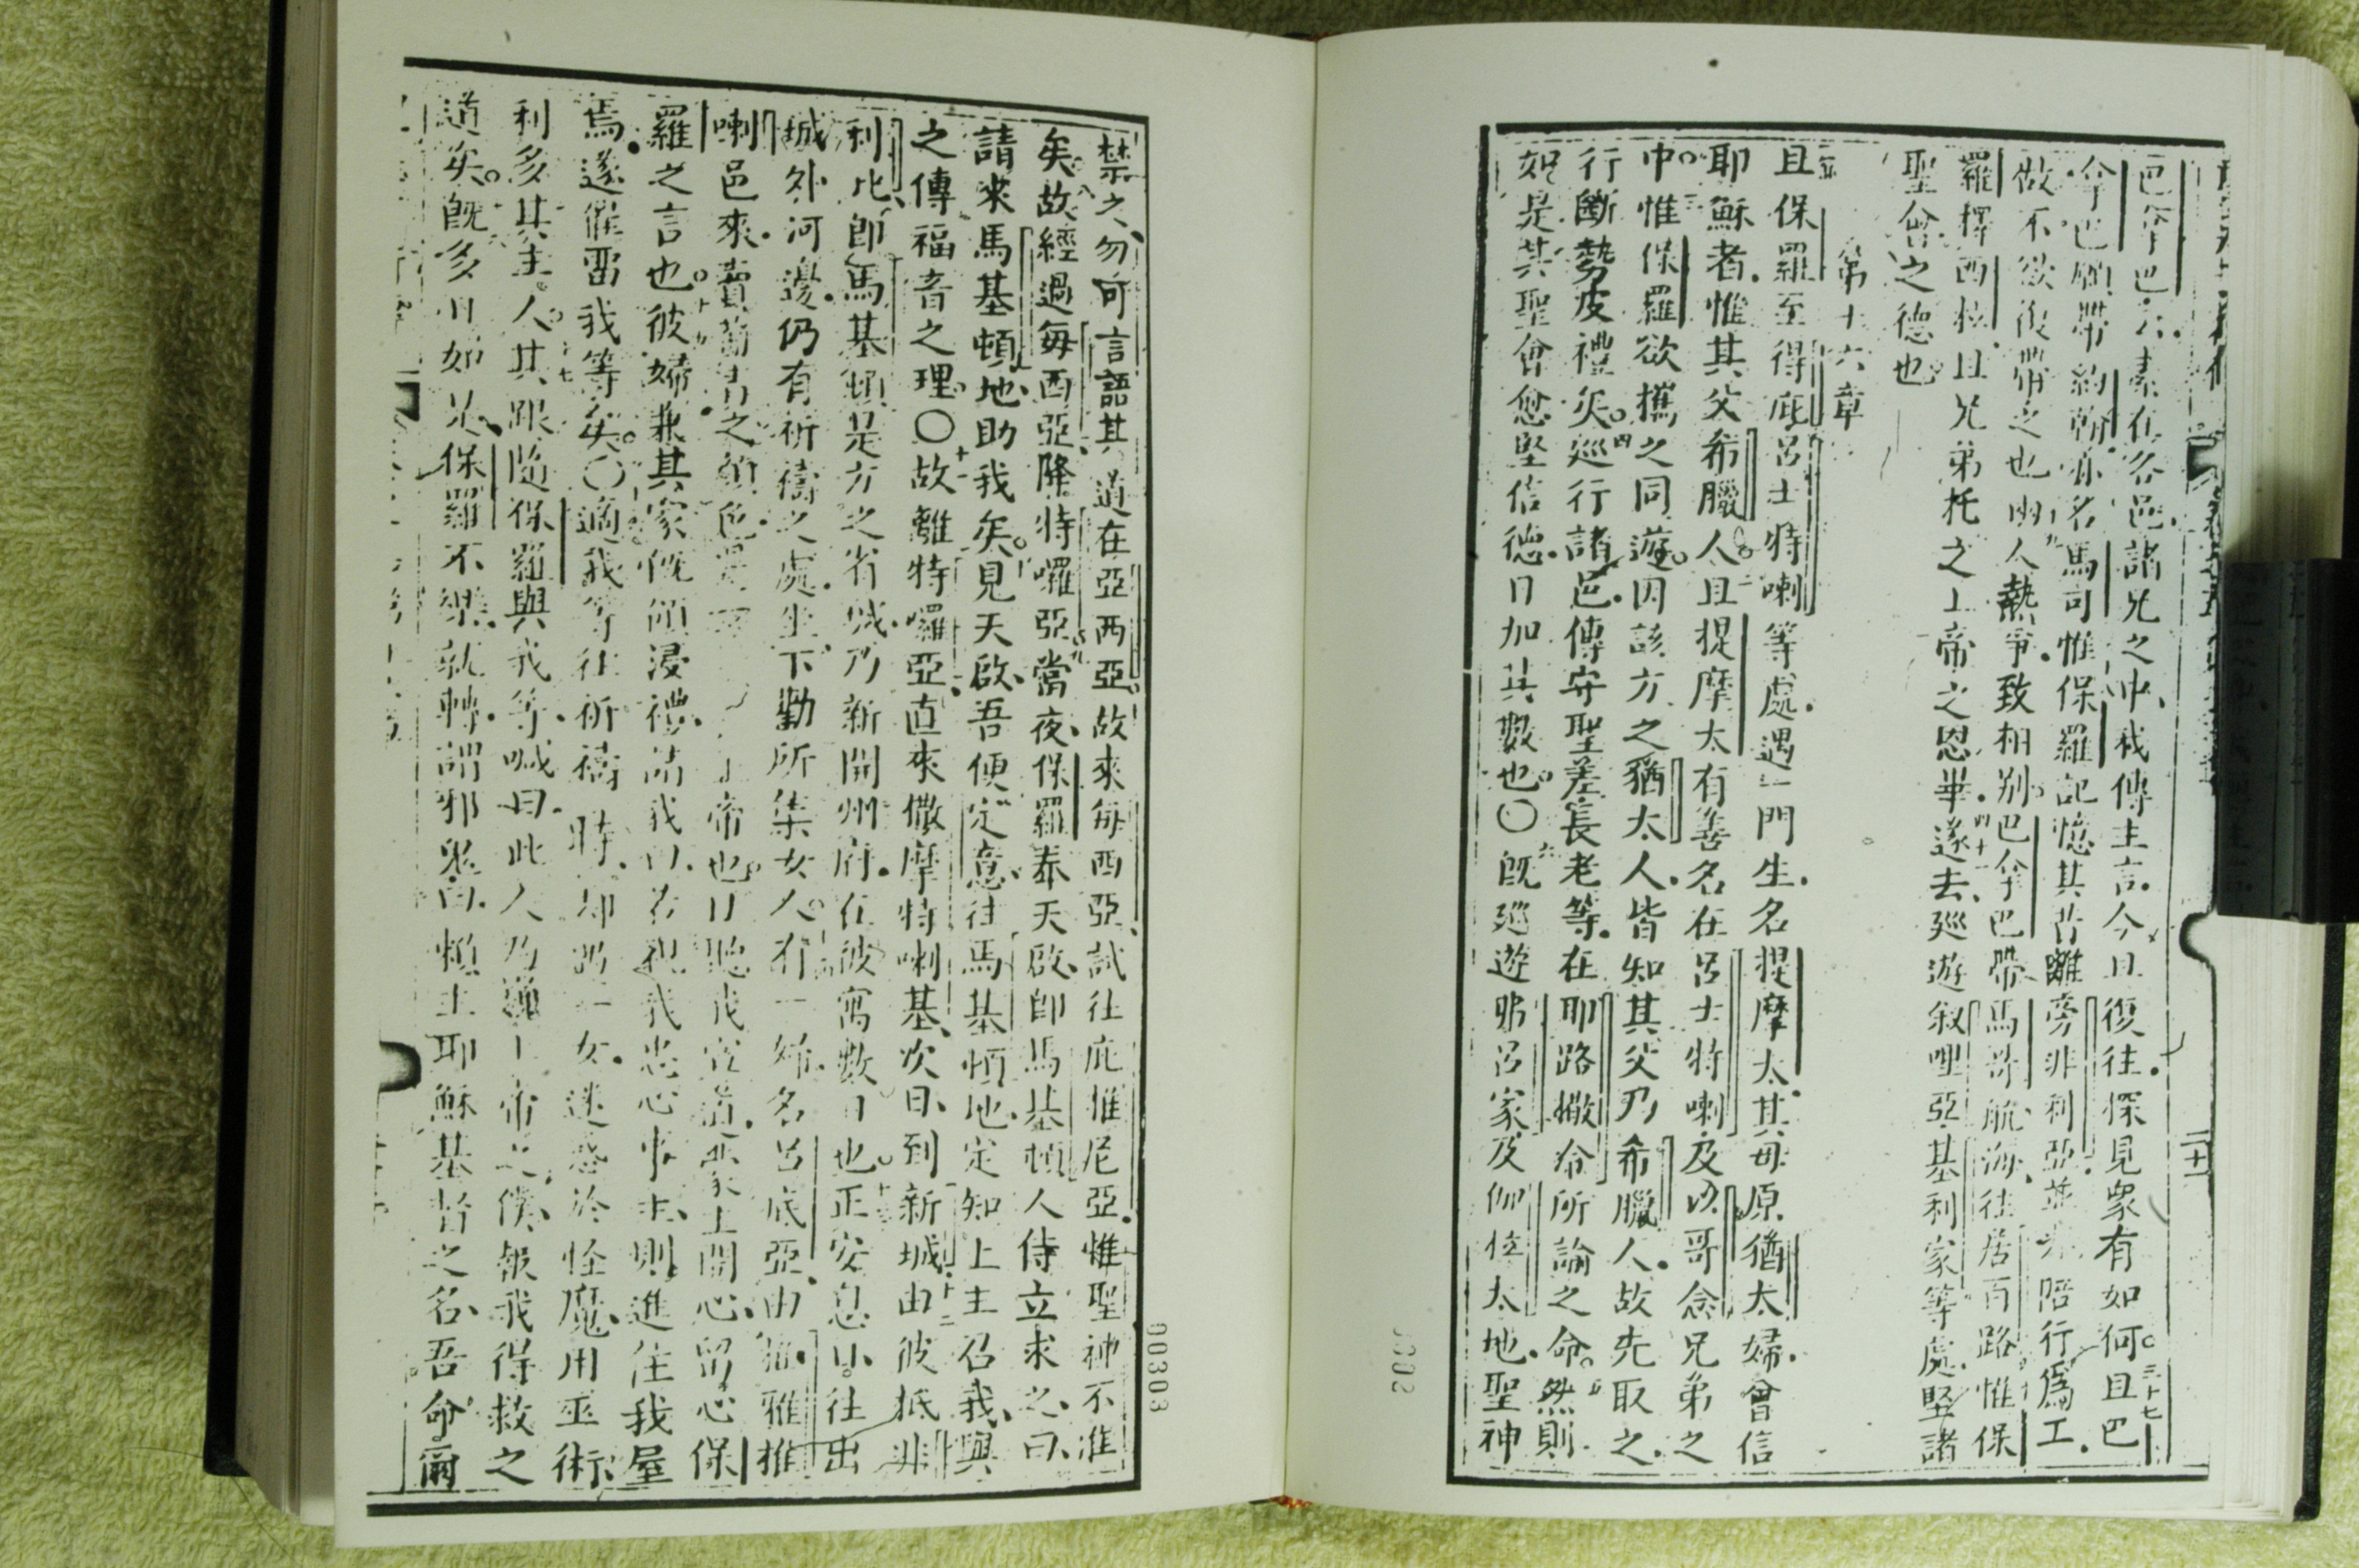 巴拿巴云素在各邑諸兄之中我傳主言今且復往探見衆有如何且巴
拿巴願帶約翰亦名馬可惟保羅記憶其昔離旁非利亞並陪行爲工
做不欲復帶之也兩人熱爭致相别巴拿巴帶馬可航海往居百路惟保
羅擇西拉且兄弟托之上帝之恩畢遂去巡遊叙哩亞基利家等處堅諸
聖會之德也
第十六章
且保羅至得庇呂士特喇等處遇一門生名提摩太其母原猶太婦曾信
耶穌者惟其父希臘人且提摩太有善名在呂士特喇及以哥念兄弟之
中惟保羅欲攜之同遊因該方之猶太人皆知其父乃希臘人故先取之
行斷勢皮禮矣巡行諸邑傳守聖差長老等在耶路撒冷所論之命然則
如是其聖會愈堅信德日加其數也〇既巡遊弗呂家及伽拉太地聖神
禁之勿可言語其道在亞西亞故來每西亞試往庇推尼亞惟聖神不准
矣故經過每西亞降特囉亞當夜保羅奉天啟卽馬基頓人侍立求之曰
請來馬基頓地助我矣見天啟吾便定意往馬基頓地定知上主召我與
之傳福音之理〇故離特囉亞直來撒摩特喇基次日到新城由彼抵非
利比卽馬基頓是方之省城乃新開州府在彼寓數日也正安息日往出
城外河邊仍有祈禱之處坐下勸所集女人有一婦名呂底亞由推雅推
喇邑來賣葡青之顏色 帝也日聽我官道蒙主開心留心保
羅之言也彼婦兼其家既領浸禮請我曰若視我忠心事主則進住我屋
焉遂催留我等矣〇適我等往祈禱時却遇一女迷惑於怪魔用巫術
利多其主人其跟隨保羅與我等喊曰此人乃 上帝之僕報我得救之
道矣既多日如是保羅不樂就轉謂邪鬼曰賴主耶穌基督之名吾命爾
二十一
00303